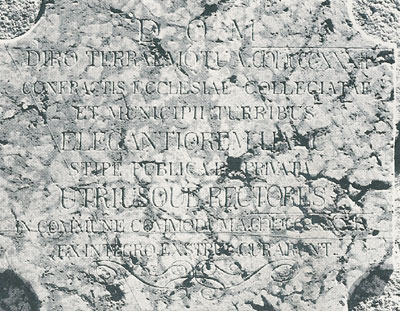 D O M
DIRO TERRAEMOTU A.
CONFRACTIS ECCLESIAE COLLEGIATAE
ET MUNICIPII TURRIBUS
ELEGANTIOREM HANC
STIPE PUBLICA ET PRIVATA
UTRIUSQUE RECTORES
IN COMMUNE COMMODUM
EX INTEGRO EXSTRUI CURARUNT.